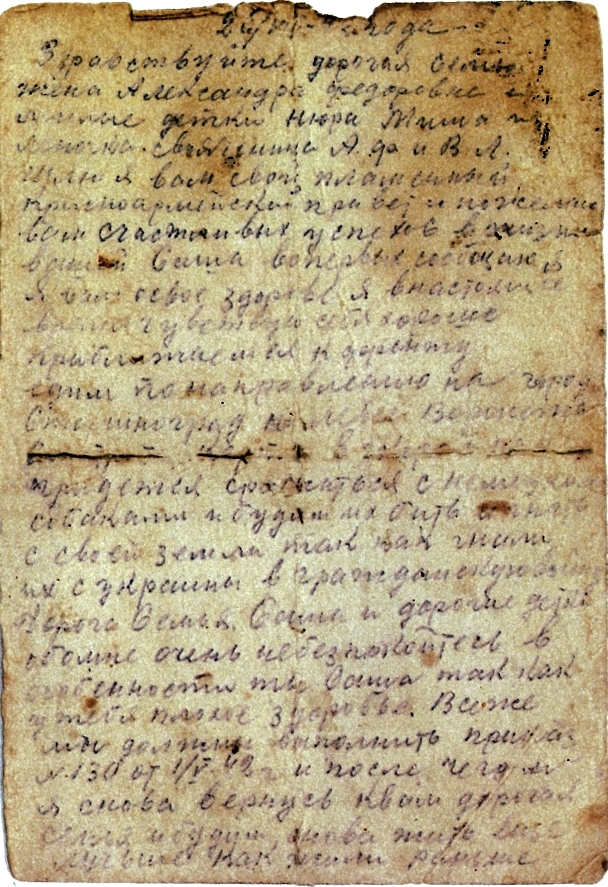 года
Здравствуйте дорогая семья
жена Александра Федоровна и
милые детки Нюра Миша и
священица А.Ф и В Л.
Шлю я вам свой пламенный
красноармейский привет и пожелаю
вам счастливых успехов в жизни
вашей Саша вопервых сообщаю
я вам освое здоровье я внастоящее
чувствую себя хорошо
приближаемся к фронту
едим по направлению на город
Сталинград
придется сразиться с немецкими
собаками и будим их бить и гнать
с своей земли так как гнали
их с украины в гражданскую войну
Дорога Семья Саша и дорогие детки
обомне очень небезпокойтесь в
особенности ты Саша так как
утебя плохое здоровье. Всеже
мы должны выполнить приказ
№130 от 1/V-42г и после чего
я снова вернусь квам дорогая
семья и будим снова жить еще
лучьше как жили раньше